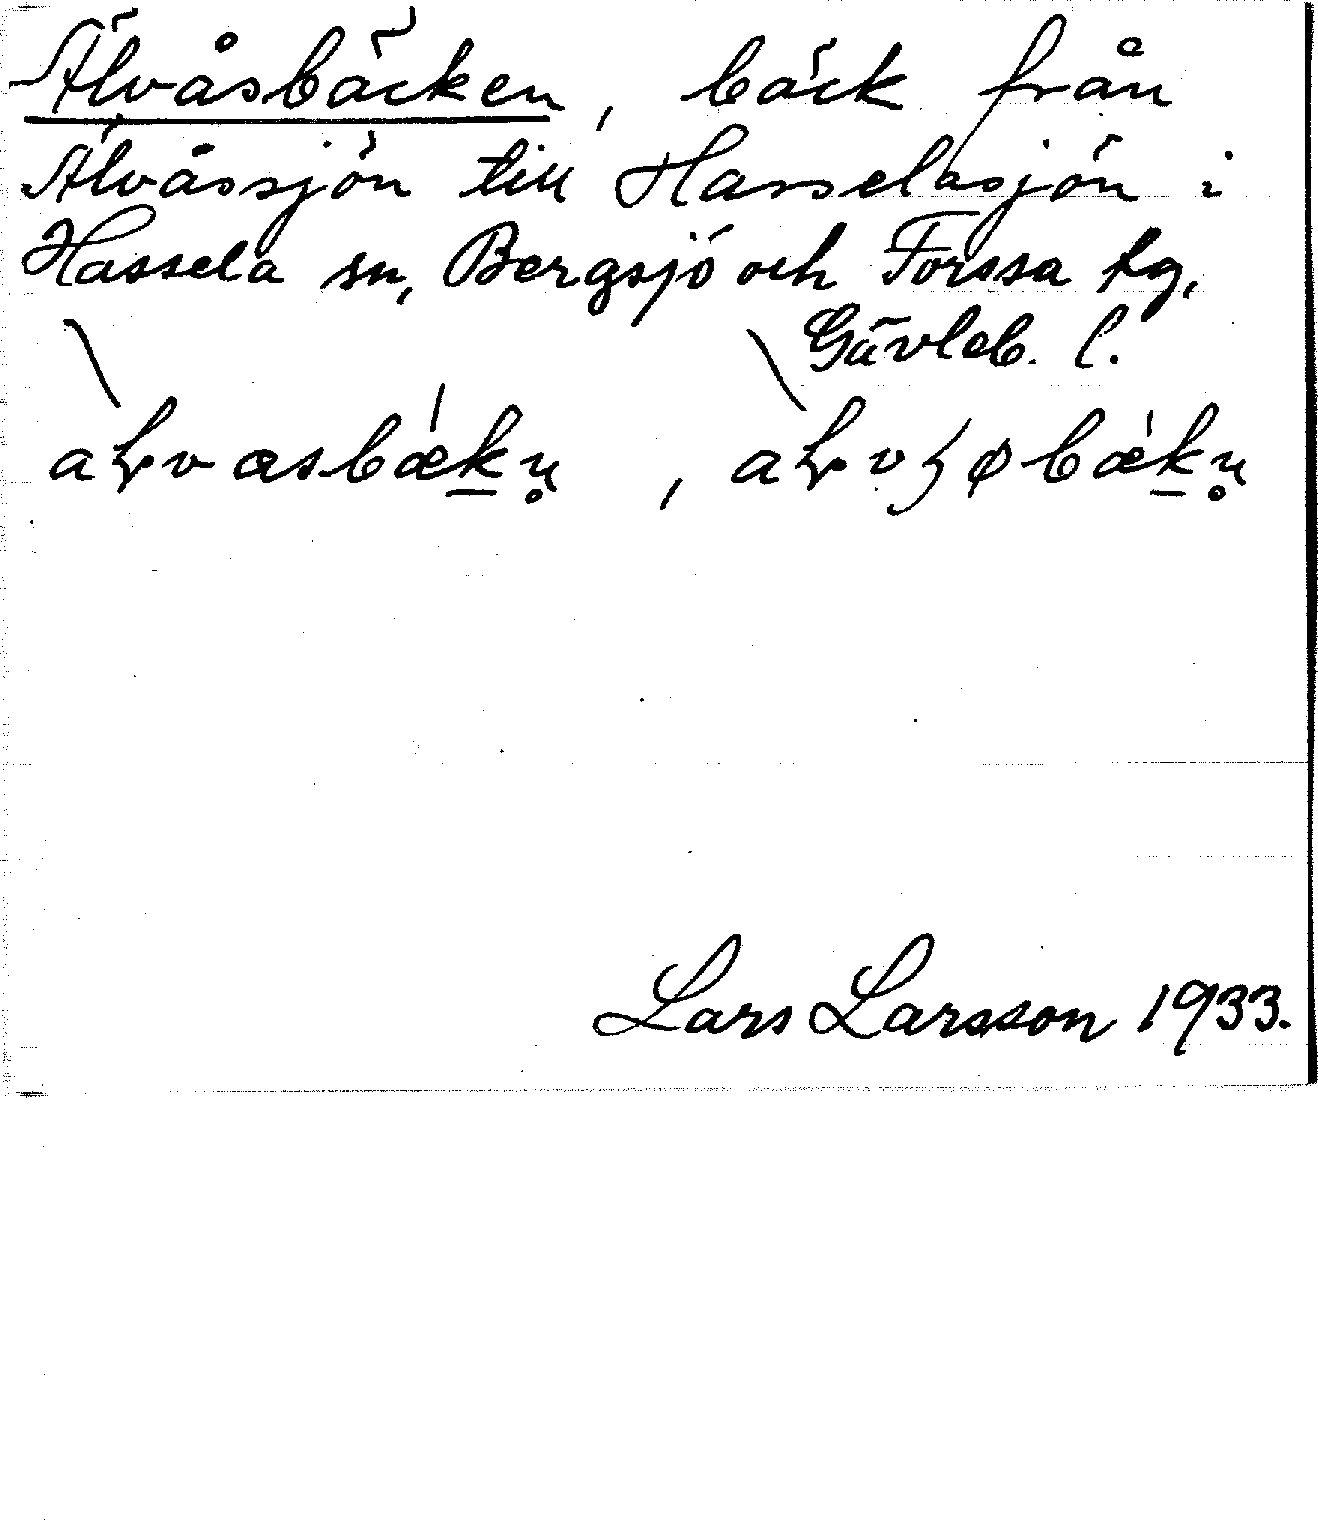 Älvåsbäcken, bäck från
Älvåssjön till Hasselasjön i
Hassela sn, Bergsjö och Forssa tg,
Gävleb. l.
Lars Larsson 1933.